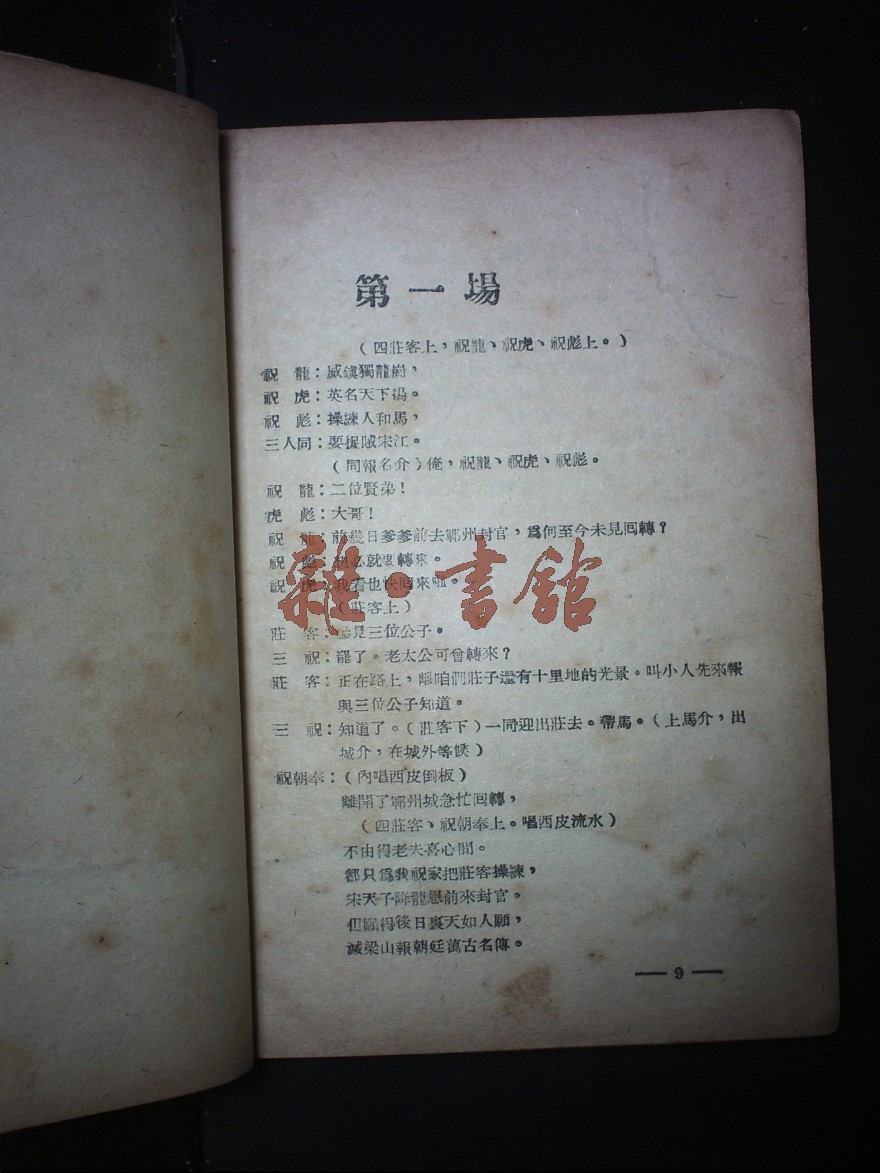 第一場
（四莊客上，祝龍、祝虎、祝彪上。）
祝　龍：威鎮獨龍崗，
祝　虎：英名天下揚。
祝　彪：操練人和馬，
三人同：要捉賊宋江。
（同報名介）俺，祝龍、祝虎、祝彪。
祝　龍：二位賢弟！
虎　彪：大哥！
祝　龍：前幾日爹爹前去鄆州封官，爲何至今未見回轉？
祝　彪：想必就要轉來。
祝　虎：我看也快回來啦。
（莊客上）
莊　客：參見三位公子。
三　祝：罷了。老太公可曾轉來？
莊　客：正在路上，離咱們莊子還有十里地的光景。叫小人先來報
與三位公子知道。
三　祝：知道了。（莊客下）一同迎出莊去。帶馬。（上馬介，出
城介，在城外等候）
祝朝奉：（內唱西皮倒板）
離開了鄆州城急忙回轉，
（四莊客、祝朝奉上。唱西皮流水）
不由得老夫喜心間。
都只爲我祝家把莊客操練，
宋天子降龍恩前來封官。
但願得後日裏天如人願，
滅梁山報朝廷萬古名傳。
— 9 —
雜·書館